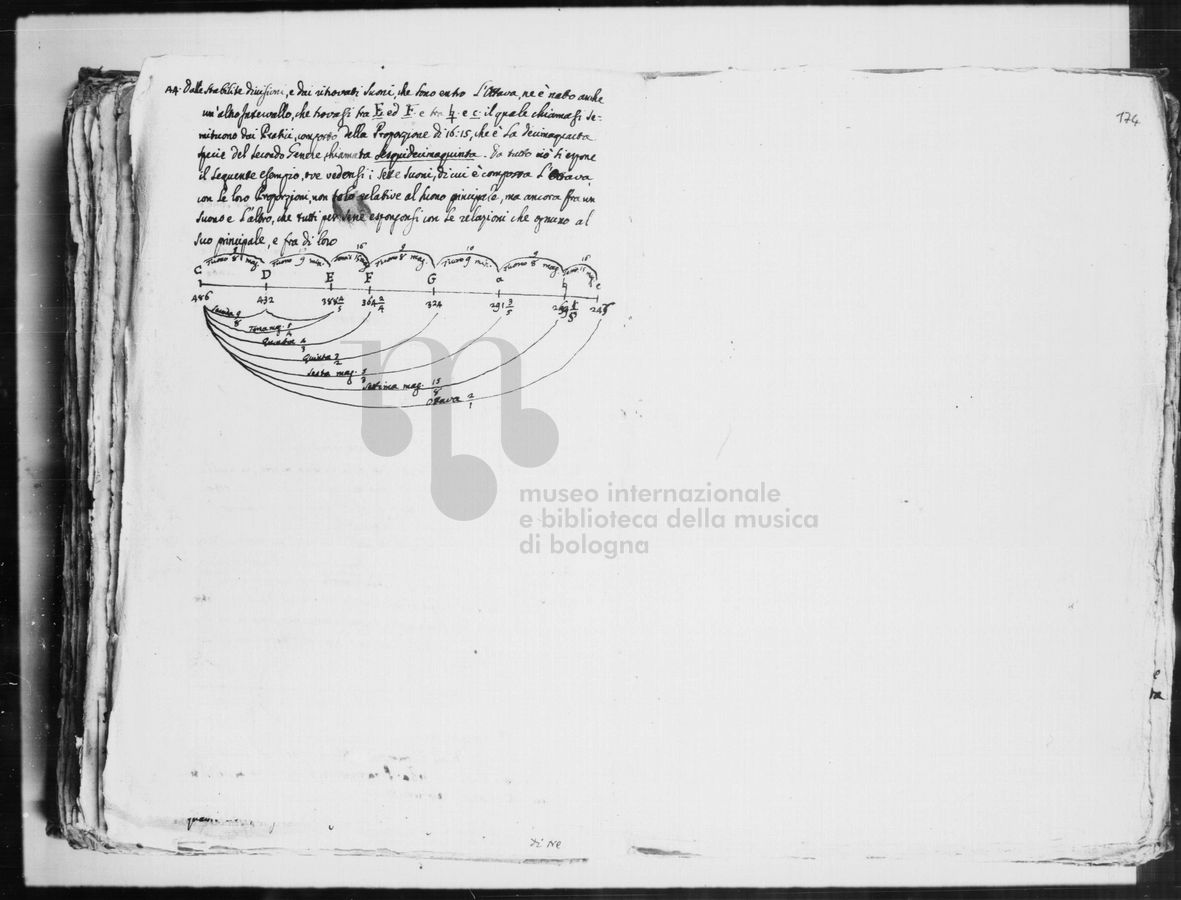 174
44. Dalle stabilite divisioni, e dai ritrovati Suoni, che sono entro L'Ottava, ne è nato anche
un'altro Intervallo, che trovasi fra E ed F. e tra ♮. e c. il quale chiamasi Se-
mituono dai Pratici, composto della Proporzione di 16:15, che è La decimaquarta
specie del Secondo Genere, chiamata Sesquidecimaquinta. Da tutto ciò si espone
il seguente esempio, ove vedonsi i Sette Suoni, di cui è composta L'Ottava,
con Le loro Proporzioni, non solo relative al Suono principale, ma ancora fra un
Suono e L'altro, che tutti per Sine esponsonsi con Le relazioni che ognuno al
Suo principale, e fra di loro
9 10 16 9 10 9 16
Tuono 8 mag. Tuono 9 min. Semit. 15 mag. Tuono 8 mag. Tuono 9 min. Tuono 8 mag. Semit. 15 mag.
C D E F G a ♮ c
486 432 388 4/5 364 2/4 324 291 3/5 243
Seconda 9/8
Terza mag. 5/4
Quarta 4/3
Quinta 3/2
Sesta mag. 5/3
Settima mag. 15/8
Ottava 2/1
museo internazionale
e biblioteca della musica
di bologna
e
ra
di Ne